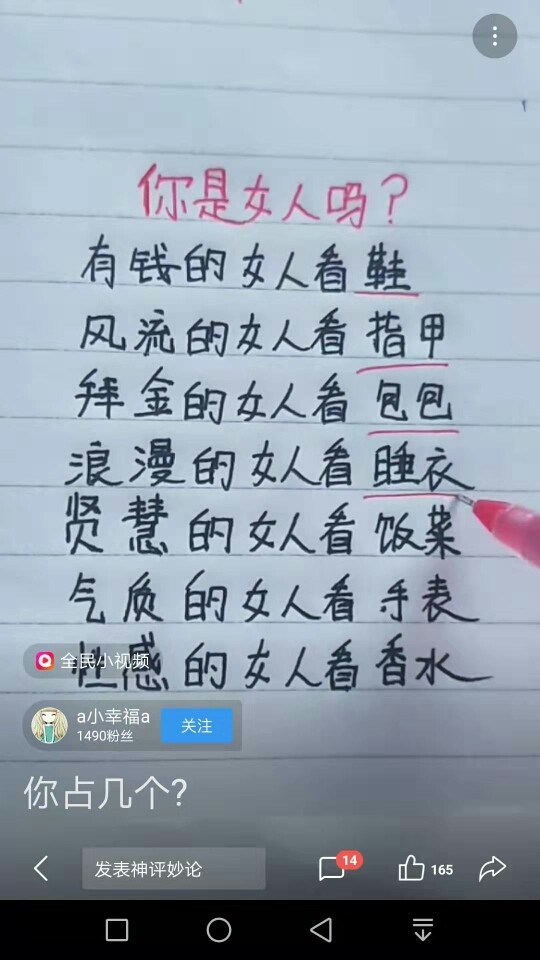 你是女人吗?
有钱的女人看鞋
风流的女人看指甲
拜金的女人看包包
浪漫的女人看睡衣
贤慧的女人看饭菜
气质的女人看手表
性感的女人看香水
全民小视频
a小幸福a
1490粉丝
关注
你占几个?
发表神评妙论
14
165